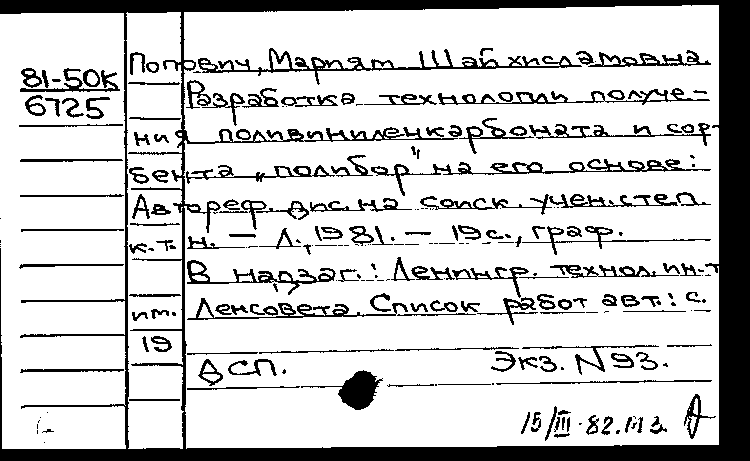 81-50К
6725
Попович, Мариям Шабхисламовна.
Разработка технологии получе-
ния поливиниленкарбоната и сор-
бента „полибор" на его основе:
Автореф. дис. на соиск. учен. степ.
к.т.н. — Л., 1981. — 19 с., граф.
В надзаг.: Ленингр. технол. ин-т
им. Ленсовета. Список работ авт.: с.
19
ДСП. Экз. N 93.
15/III-82. МЗ.